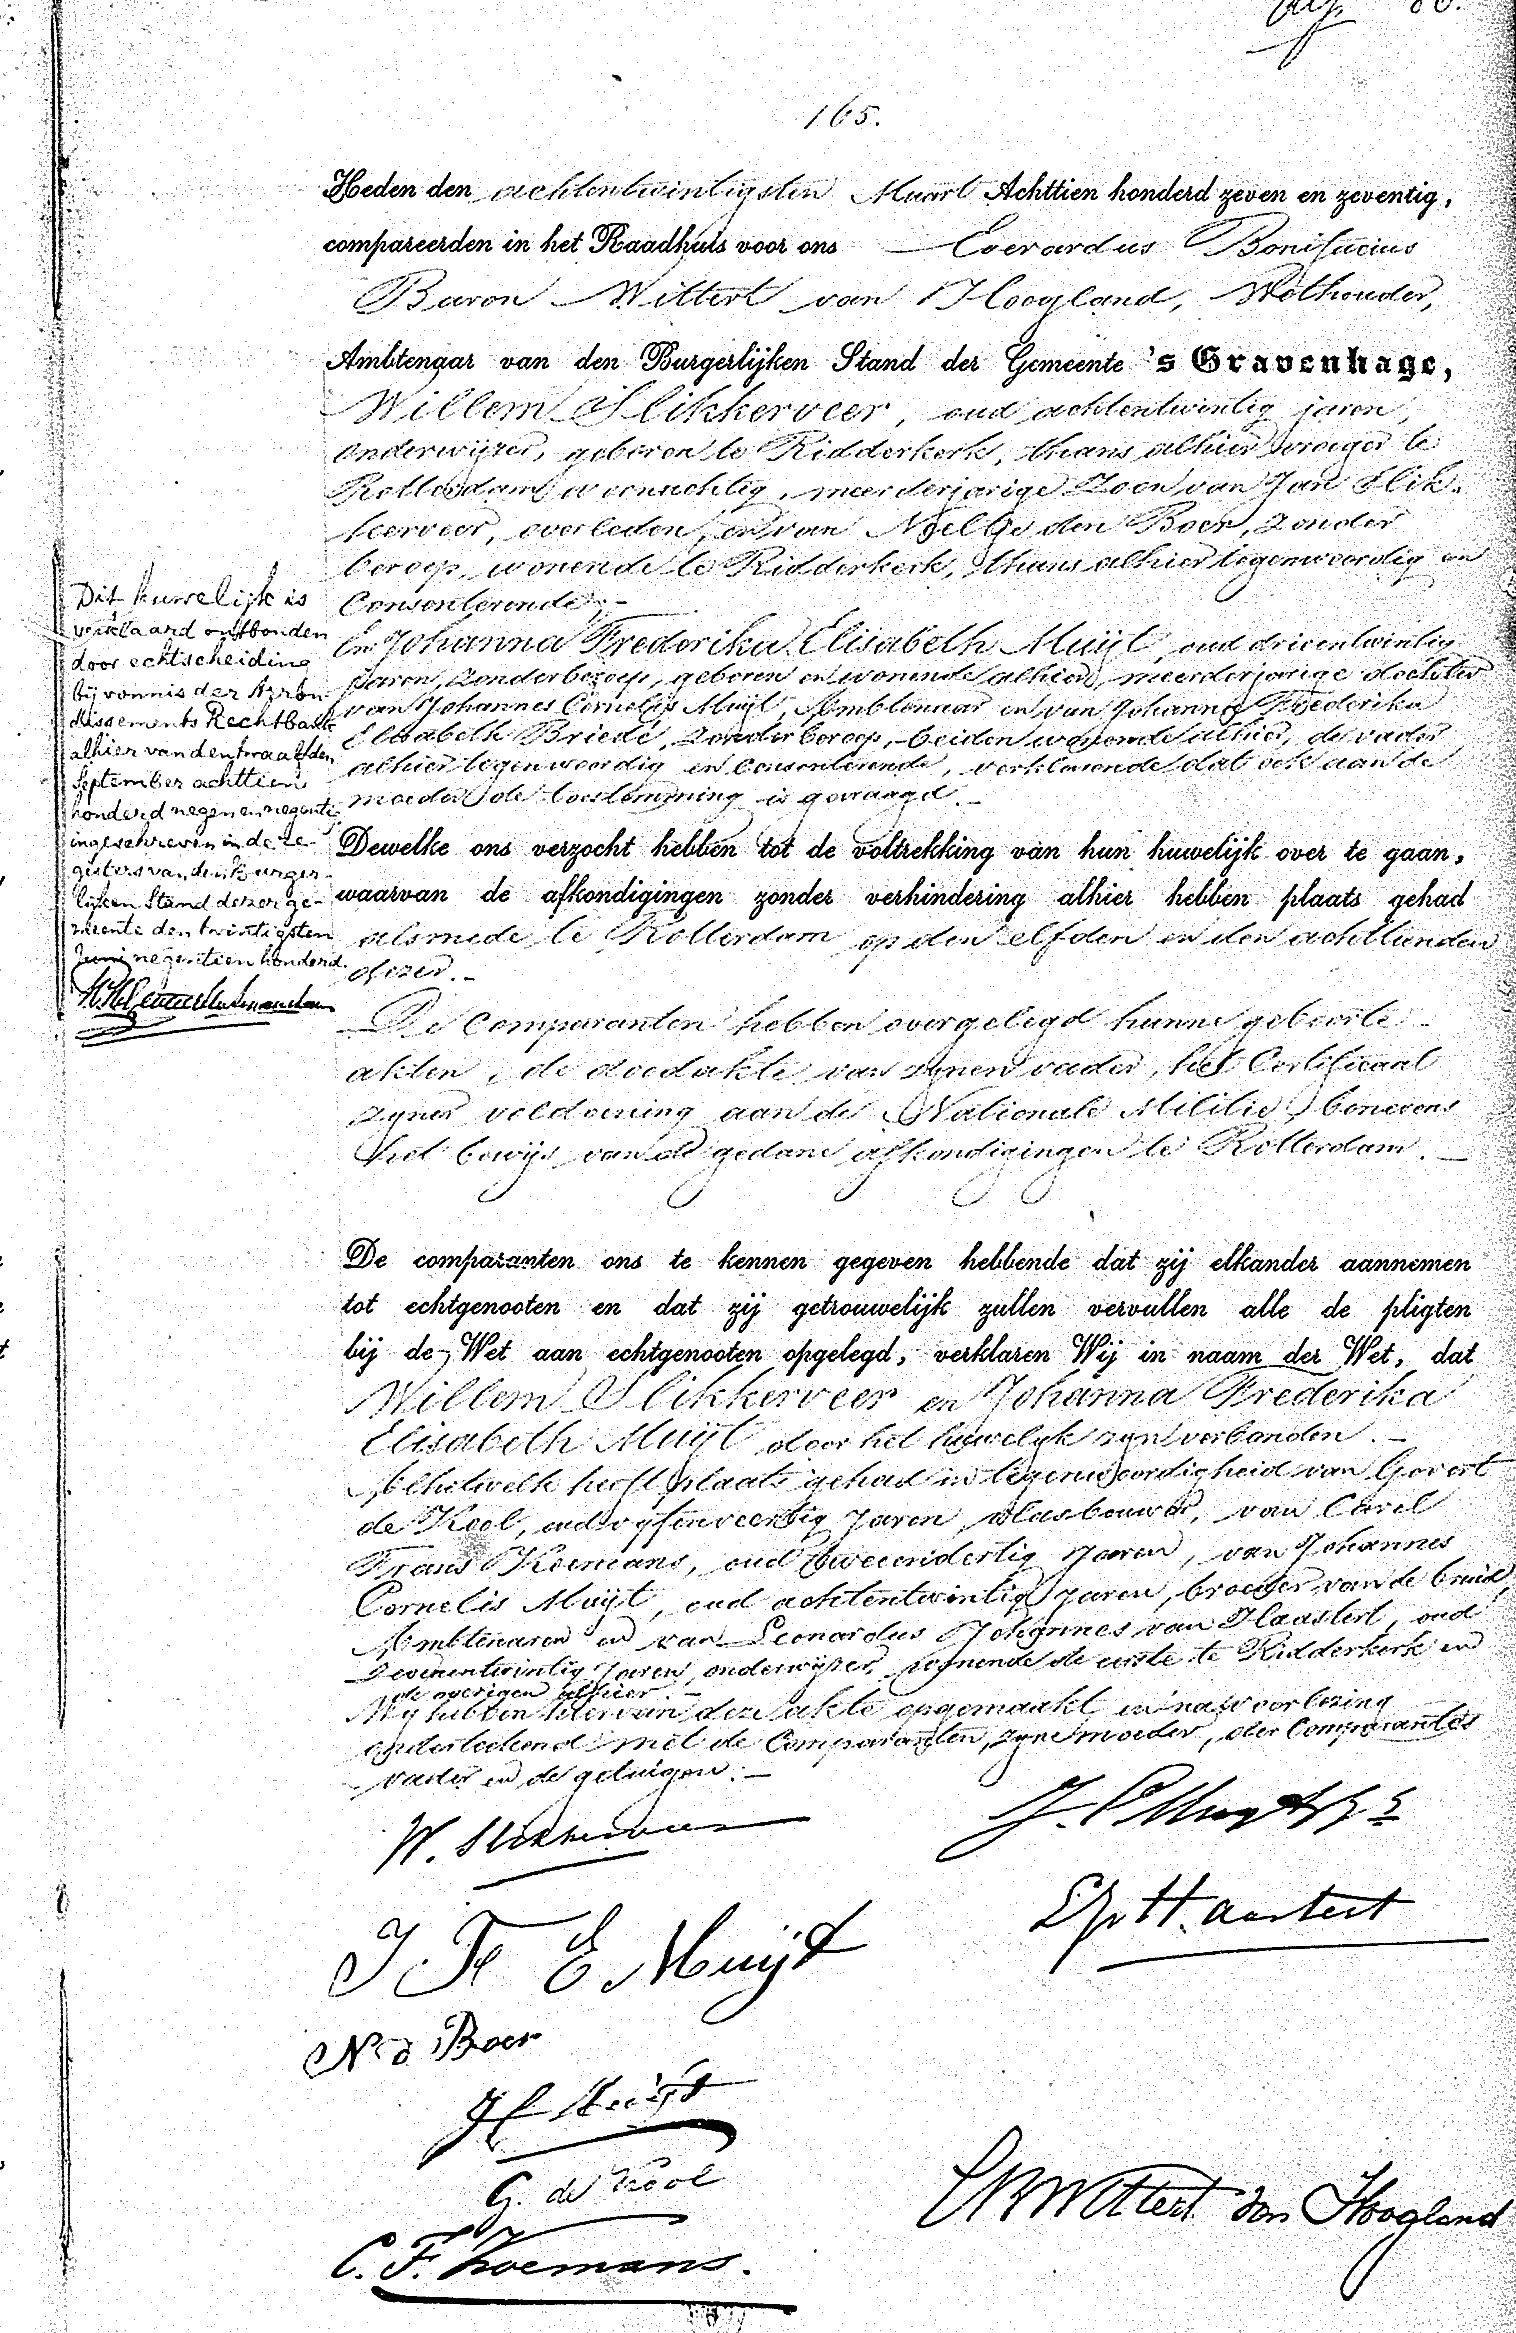 165.
Heden den achtentwintigsten Maart Achttien honderd zeven en zeventig,
compareerden in het Raadhuis voor ons Everardus Bonifacius
Baron Wittert van Hoogland, Wethouder,
Ambtenaar van den Burgerlijken Stand der Gemeente 's Gravenhage,
Willem Slikkerveer, oud achtentwintig jaren,
onderwijzer, geboren te Ridderkerk, thans alhier vroeger te
Rotterdam woonachtig, meerderjarige Zoon van Jan Slik-
kerveer, overleden, en van Neeltje den Boer, zonder
beroep, wonende te Ridderkerk, thans alhier tegenwoordig en
Consenterende;-
En Johanna Frederika Elisabeth Muijt, oud drieentwintig
jaren, zonder beroep, geboren en wonende alhier, meerderjarige dochter
van Johannes Cornelis Muijt, Ambtenaar en van Johanna Frederika
Elisabeth Briede, zonder beroep, beiden wonende alhier, de vader
alhier tegenwoordig en consenterende, verklarende dat ook aan de
moeder de toestemming is gevraagd.-
Dewelke ons verzocht hebben tot de voltrekking van hun huwelijk over te gaan,
waarvan de afkondigingen zonder verhindering alhier hebben plaats gehad
alsmede te Rotterdam op den elfden en den achttienden
dezer.-
De Comparanten hebben overgelegd hunne geboorte
akten, de doodakte van zijnen vader, het Certificaat
zijner voldoening aan de Nationale Militie, benevens
het bewijs van de gedane afkondigingen te Rotterdam.-
De comparanten ons te kennen gegeven hebbende dat zij elkander aannemen
tot echtgenooten en dat zij getrouwelijk zullen vervullen alle de pligten
bij de Wet aan echtgenooten opgelegd, verklaren Wij in naam der Wet, dat
Willem Slikkerveer en Johanna Frederika
Elisabeth Muijt door het huwelijk zijn verbonden.-
hetwelk heeft plaats gehad in tegenwoordigheid van Govert
de Kool, oud vijfenveertig jaren, vlasbouwer, van Carel
Frans Koemans, oud tweeendertig jaren, van Johannes
Cornelis Muijt, oud achtentwintig jaren, broeder van de bruid,
Ambtenaren en van Leonardus Johannes van Haastert, oud
zevenentwintig jaren, onderwijzer, wonende de eerste te Ridderkerk en
de overigen alhier.-
Wij hebben hiervan deze akte opgemaakt en na voorlezing
onderteekend met de Comparanten, zijne moeder, der Comparantes
vader en de getuigen.-
Dit huwelijk is
verklaard ontbonden
door echtscheiding
bij vonnis der Arron-
dissements Rechtbank
alhier van den twaalfden
September achttien
honderd negen en negentig
ingeschreven in de re-
gisters van den Burger-
lijken Stand dezer ge-
meente den twintigsten
Juni negentien honderd.
W. Slikkerveer
J. F E Muijt
N d Boer
JC Muijt
G. de Kool
C. F. Koemans.
J. C Muijt
LJv H.aastert
EBWittert van Hoogland